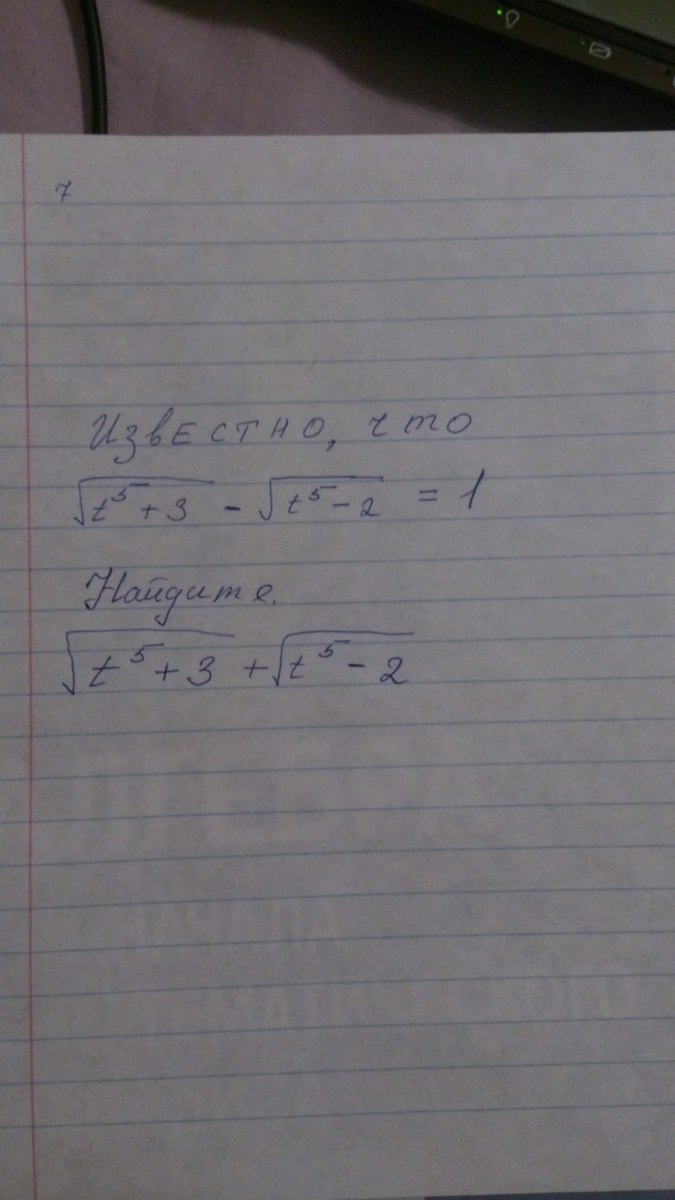 7
Известно, что
√(t⁵+3) - √(t⁵-2) = 1
Найдите.
√(t⁵+3) + √(t⁵-2)